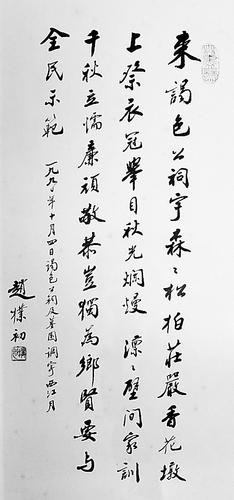 来謁包公祠宇森〻松柏莊嚴香花墩
上祭衣冠舉目秋光爛熳 凛〻壁间家訓
千秋立懦廉頑敬恭豈獨為鄉賢要与
全民示範
一九九〇年十月四日謁包公祠及墓園調寄西江月
趙樸初